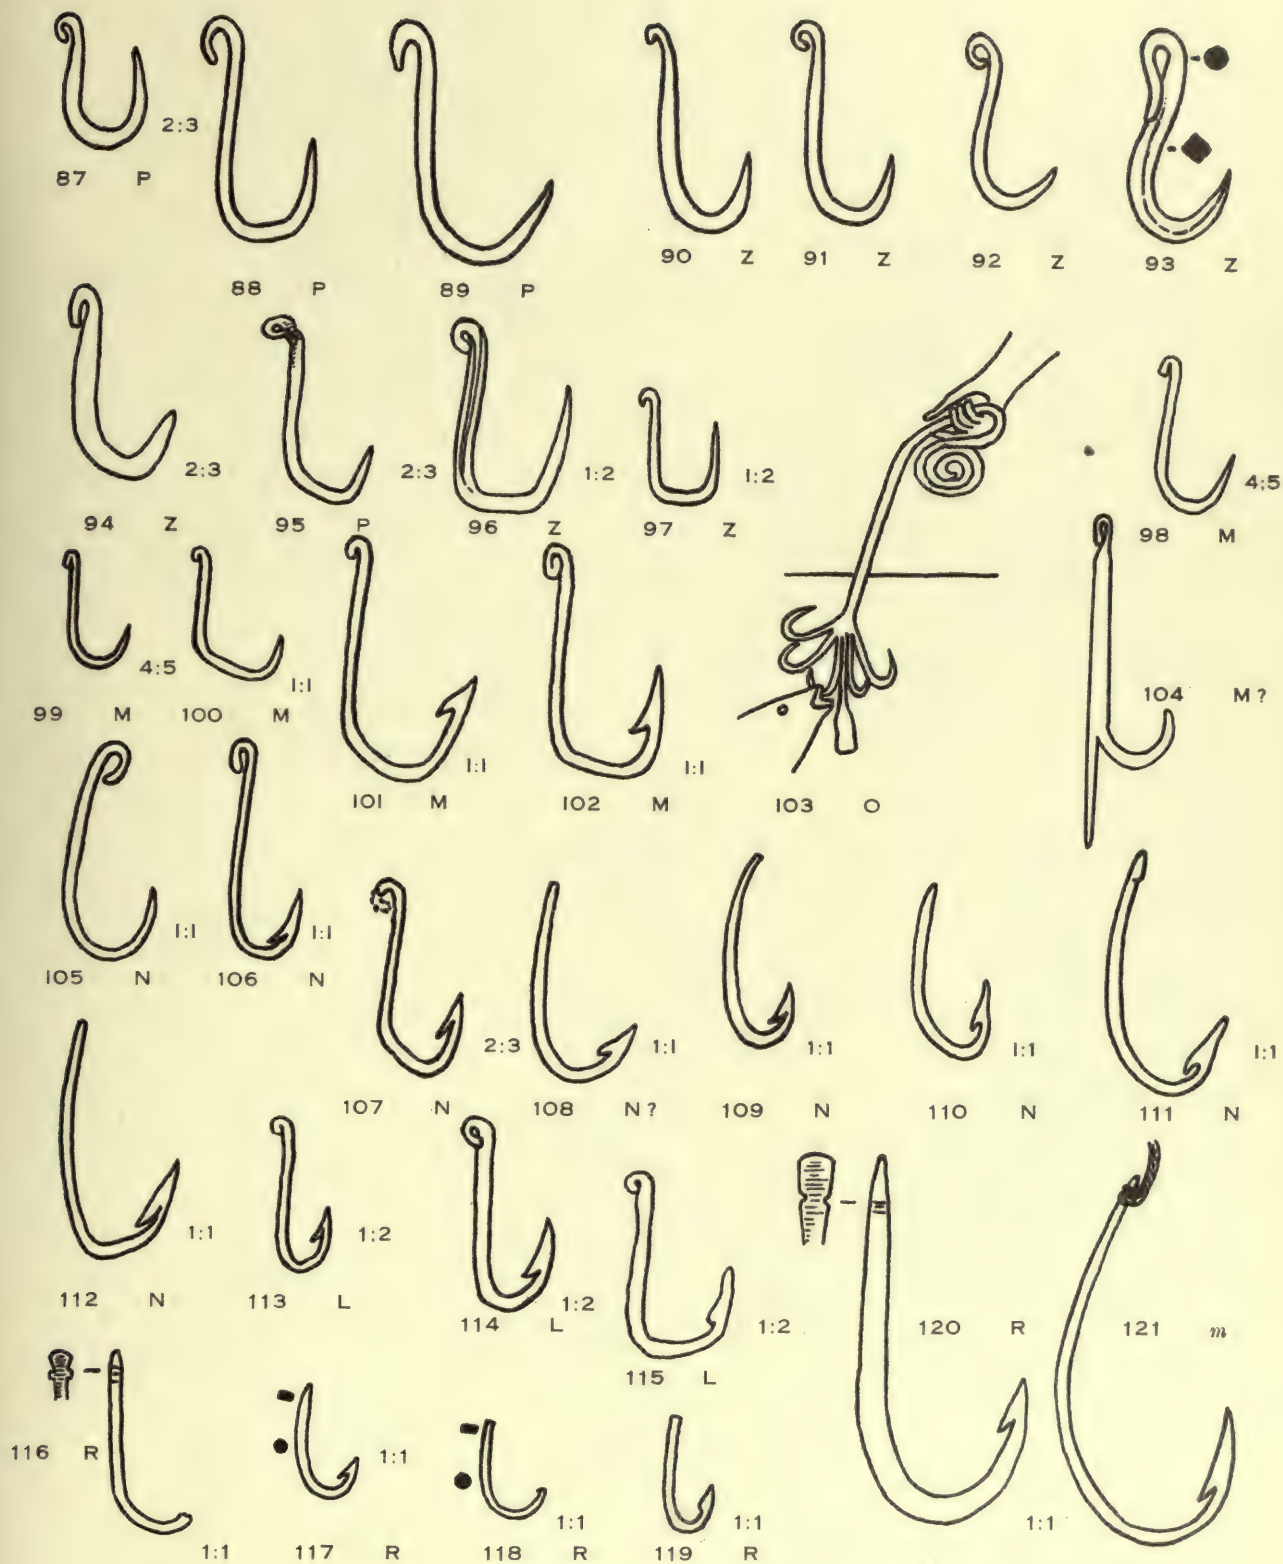 2:3
87 P
88 P
89 P
90 Z
91 Z
92 Z
93 Z
2:3
94 Z
2:3
95 P
1:2
96 Z
1:2
97 Z
4:5
98 M
4:5
99 M
1:1
100 M
1:1
101 M
1:1
102 M
103 O
104 M?
1:1
105 N
1:1
106 N
2:3
107 N
1:1
108 N?
1:1
109 N
1:1
110 N
1:1
111 N
1:1
112 N
1:2
113 L
1:2
114 L
1:2
115 L
116 R
1:1
1:1
117 R
1:1
118 R
1:1
119 R
120 R
1:1
121 m